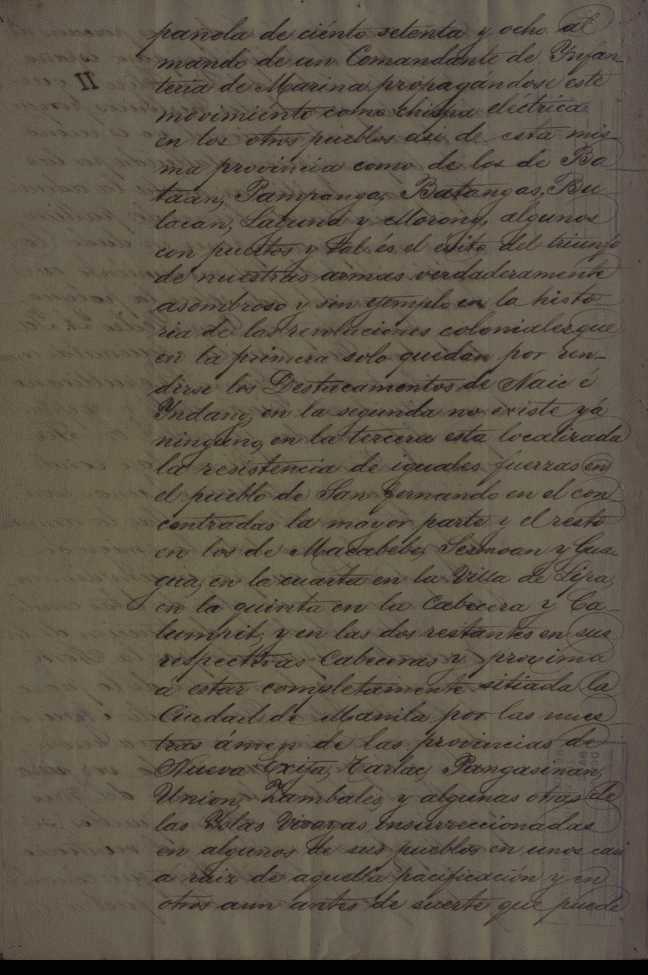 pañola de ciento setenta y ocho al
mando de un Comandante de Ynfan-
teria de Marina propagándose este
II
movimiento como chispa eléctrica
en los otros pueblos asi de esta mis-
ma provincia como de los de Ba
taan, Pampanga, Batangas, Bu
lacan, Laguna y Morong, algunos
con puertos y tal es el éxito del triunfo
de nuestras armas verdaderamente
asombroso y sin ejemplo en la histo
ria de las revoluciones coloniales que
en la primera solo quedan por ren-
dirse los Destacamentos de Naic é
Yndang, en la segunda no existe yá
ninguno, en la tercera esta localizada
la resistencia de iguales fuerzas en
el pueblo de San Fernando en el con
centradas la mayor parte y el resto
en los de Macabebe, Sexmoan y Gua-
gua, en la cuarta en la Villa de Lipa,
en la quinta en la Cabecera y Ca-
lumpit, y en las dos restantes en sus
respectivas Cabeceras y proxima
á estar completamente sitiada la
Ciudad de Manila por las nues
tras de las provincias de
Nueva Ecija, Tarlac, Pangasinan,
Union, Zambales y algunas otras de
las Yslas Visayas insurreccionadas
en algunos de sus pueblos en unos casi
a raiz de aquella pacificación y en
otros aun antes de suerte que puede